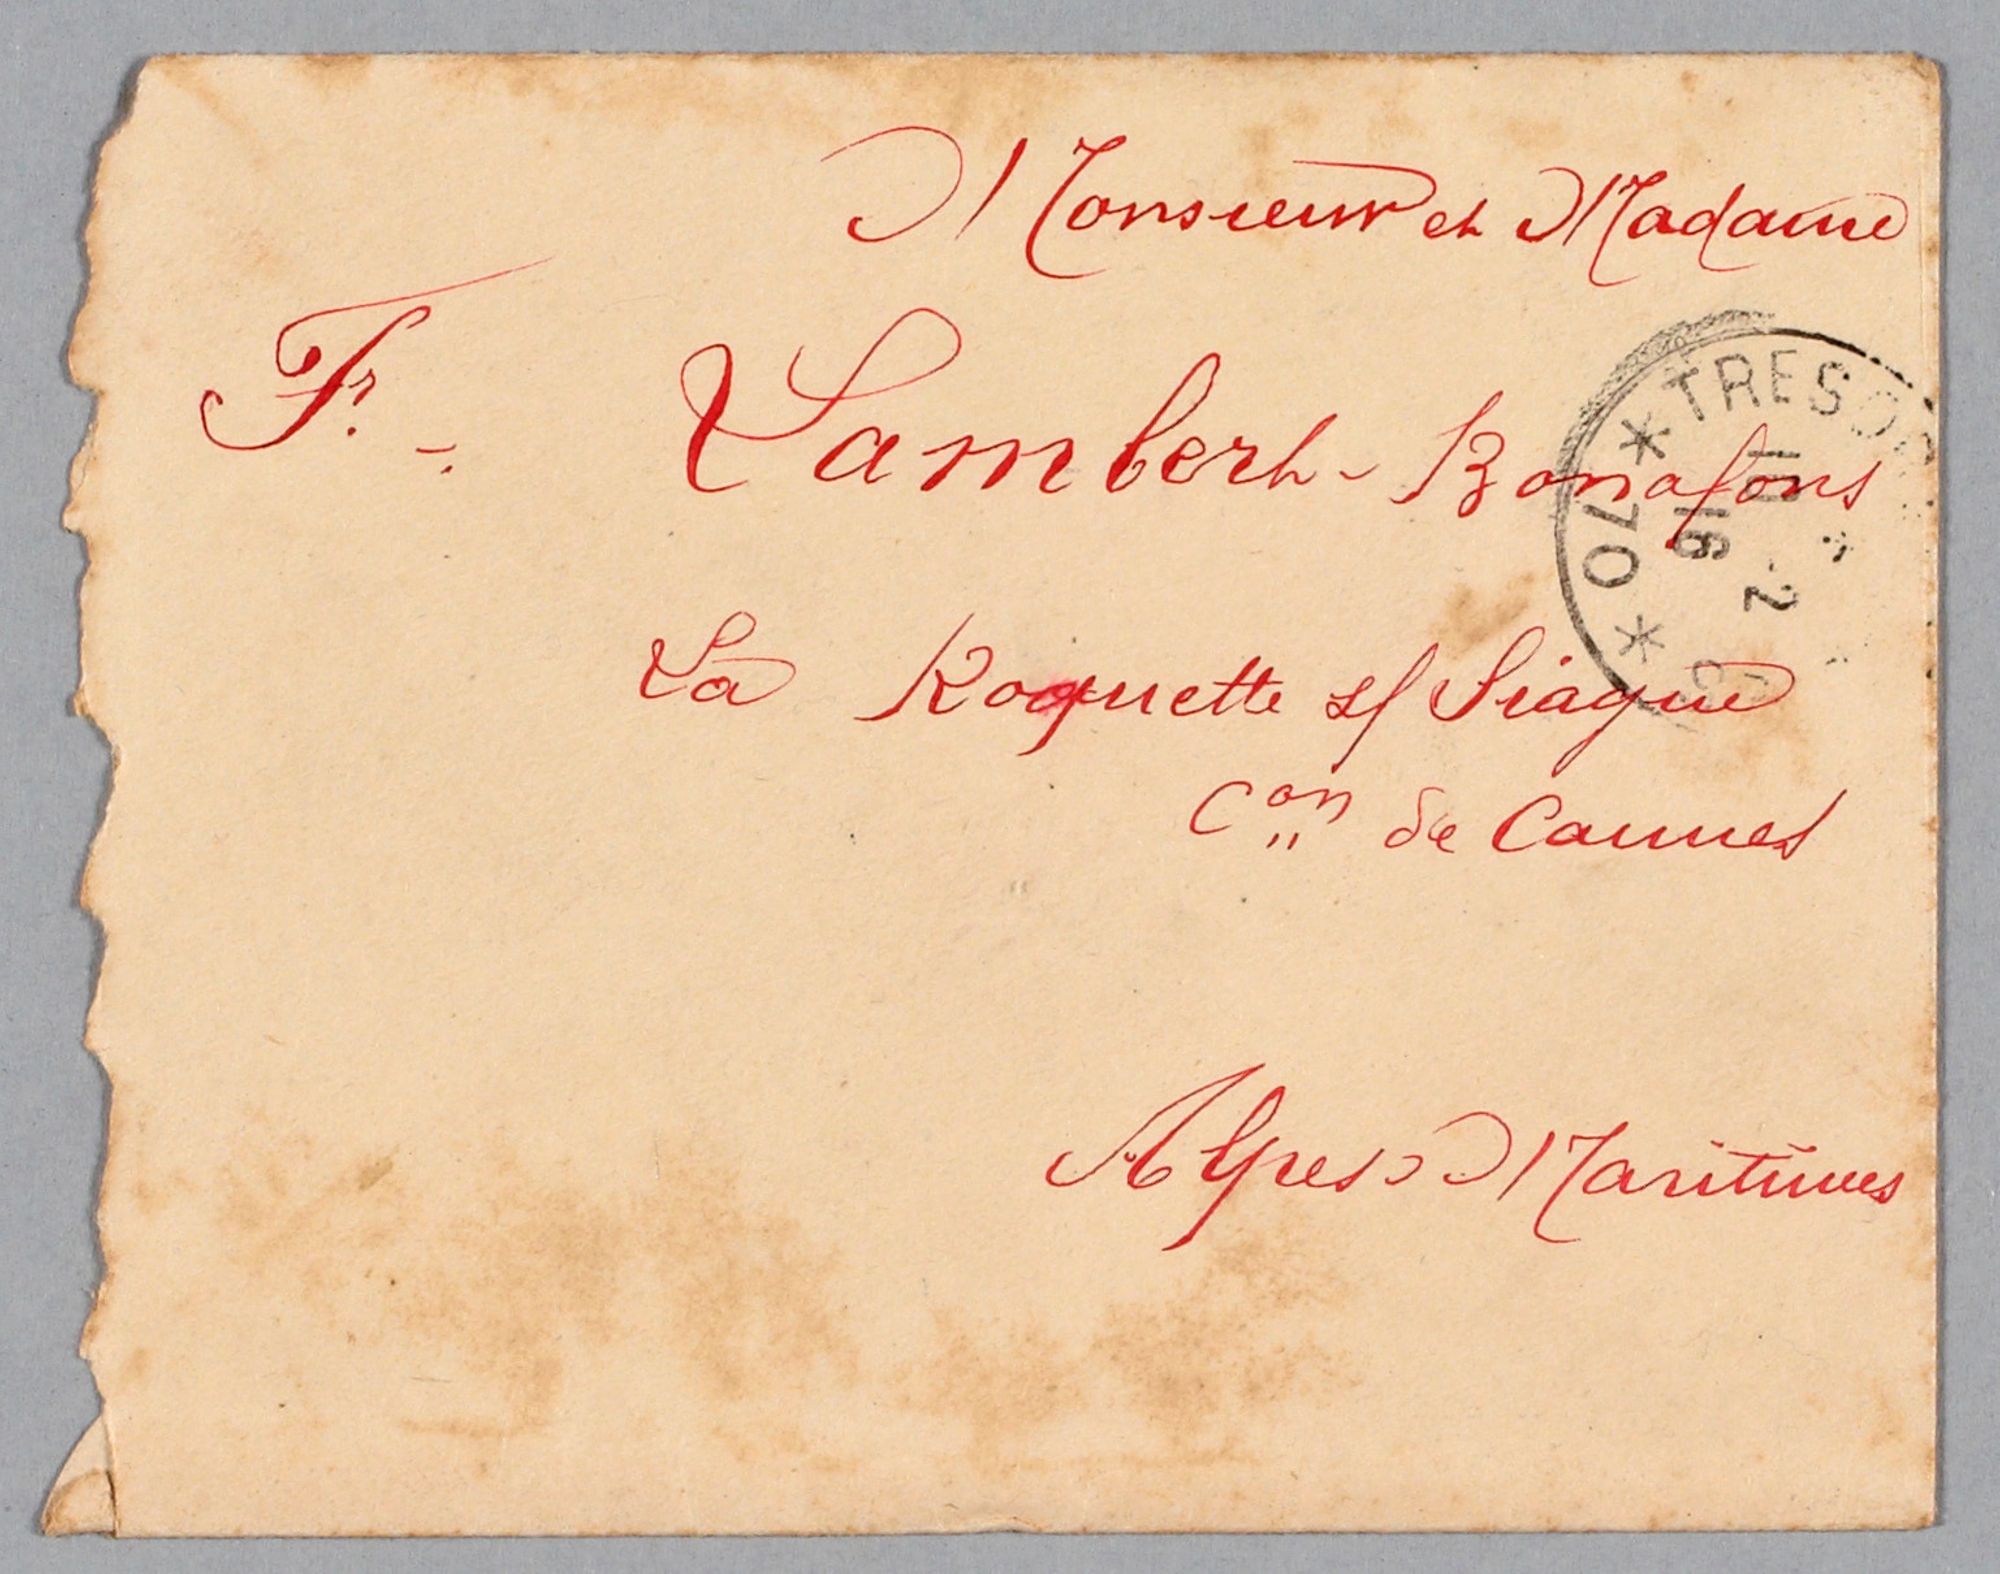 Monsieur et Madame
Fr. - Lambert - Bonafons
La Roquette s/ Siagne
Con de Cannes
Alpes Maritimes
* TRESOR
70 *
10 - 2
16